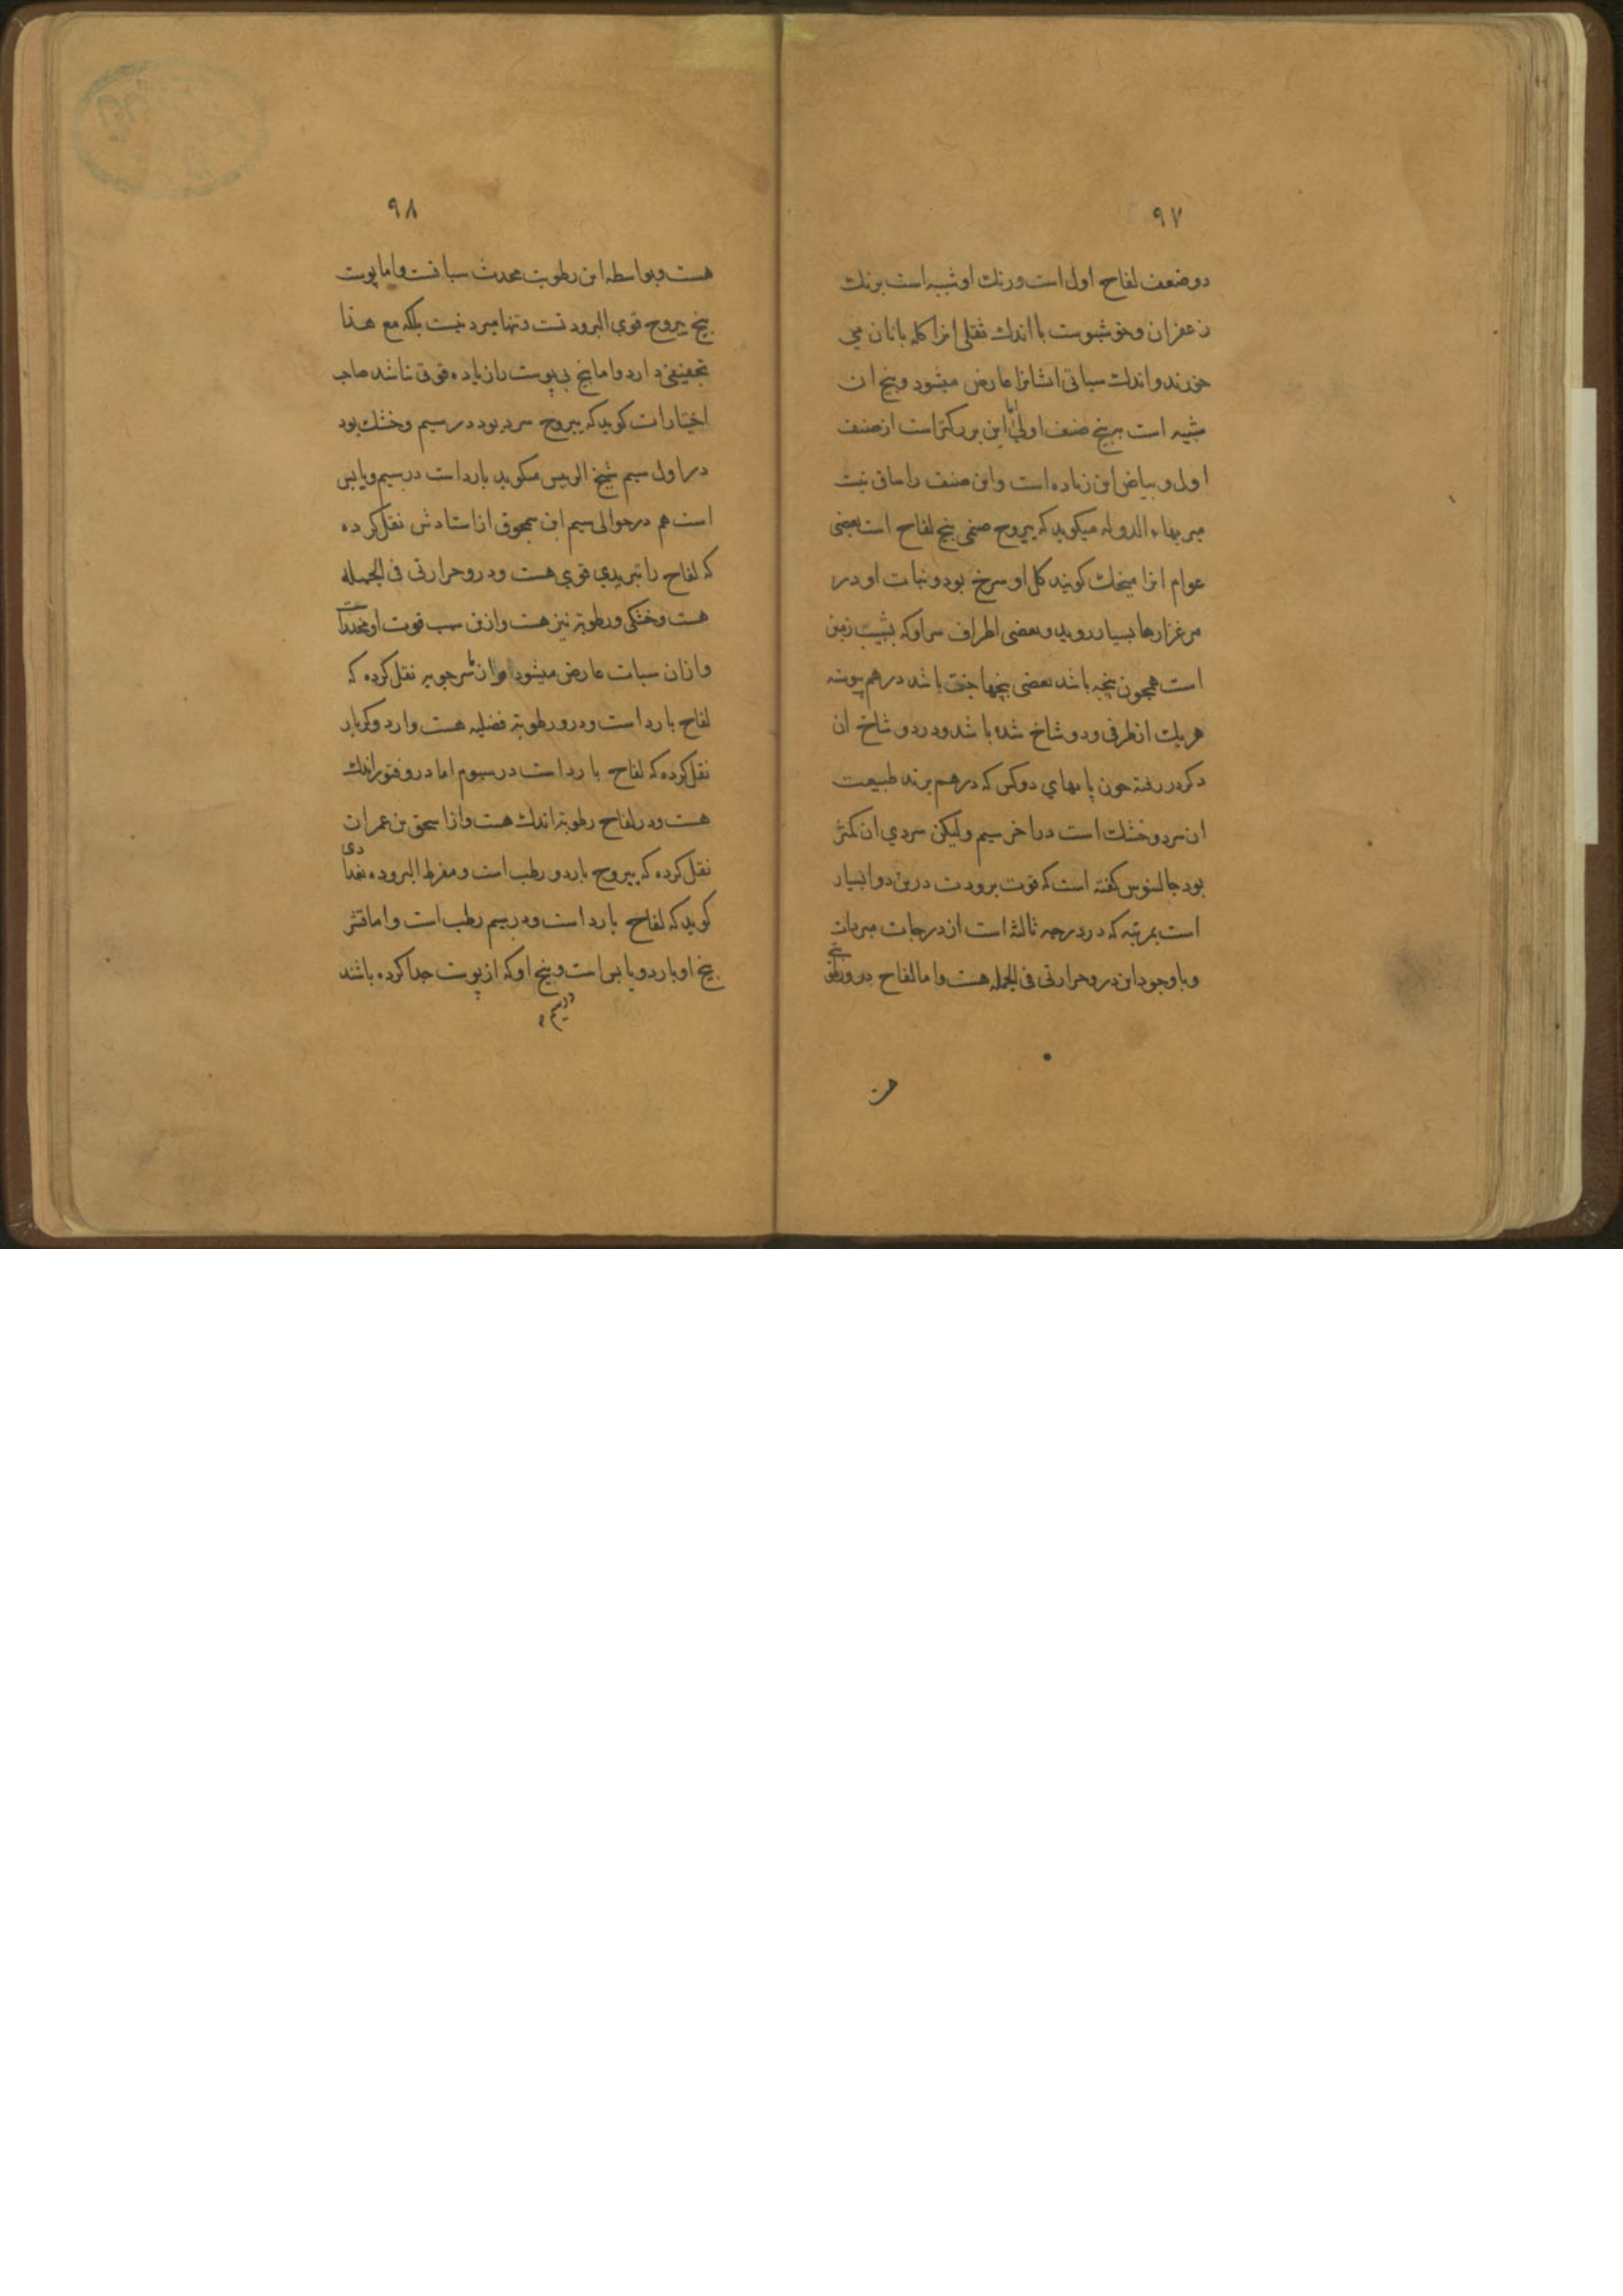 ۹۷
دو ضعف لفاح اول است و رنك او شبیه است برنك
زعفران و خوشبوست با اندك ثقلی انرا كله بانان می
خورند و اندك سباتی ایشانرا عارض میشود و بیخ ان
شبیه است ببیخ صنف اول این بزركتر است از صنف
اول و بیاض این زیاده است و این صنف را ساق نیست
میر بهاء الدوله میكوید كه یبروح صنمی بیخ لفاح است بعضی
عوام انرا میخك كویند كل او سرخ بود و نبات او در
مرغزارها بسیار روید و بعضی اطراف سر او كه بشیب زمین
است همچون پنجه باشد بعضی بیخها جفت باشد در هم پیوسته
هر یك از طرفی و دو شاخ شده باشد و در دو شاخ ان
دكر در رفته چون پایهای دو كس كه در هم برند طبیعت
ان سرد و خشك است در اخر سیم ولیكن سردی ان كمتر
بود جالینوس كفته است كه قوت برودت درین دوا بسیار
است بمرتبه كه در درجه ثالثه است از درجات مبردات
و با وجود این درو حرارتی فی الجمله هست و اما لفاح درو رطوبتی
۹۸
هست و بواسطه این رطوبت محدث سباتست و اما پوست
بیخ یبروح قوی البرودتست و تنها مبرد نیست بلكه مع هذا
تجفیفی دارد و اما بیخ بی پوست را زیاده قوتی نباشد صاحب
اختیارات كوید كه یبروح سرد بود در سیم و خشك بود
در اول سیم شیخ الرییس میكوید بارد است در سیم و یابس
است هم در حوالی سیم ابن سمجون از استادش نقل كرده
كه لفاح را تبریدی قوی هست و درو حرارتی فی الجمله
هست و خشكی و رطوبتی نیز هست و ازین سبب قوت او مخدر است
و ازان سبات عارض میشود و از ماسرجویه نقل كرده كه
لفاح بارد است و درو رطوبته فضلیه هست و از
نقل كرده كه لفاح بارد است در سیوم اما درو فتور اندك
هست و در لفاح رطوبته اندك هست و از اسحق بن عمران
نقل كرده كه یبروح بارد و رطب است و مفرط البروده بغدادی
كوید كه لفاح بارد است و در سیم رطب است و اما قشر
بیخ او بارد و یابس است و بیخ او كه از پوست جدا كرده باشند